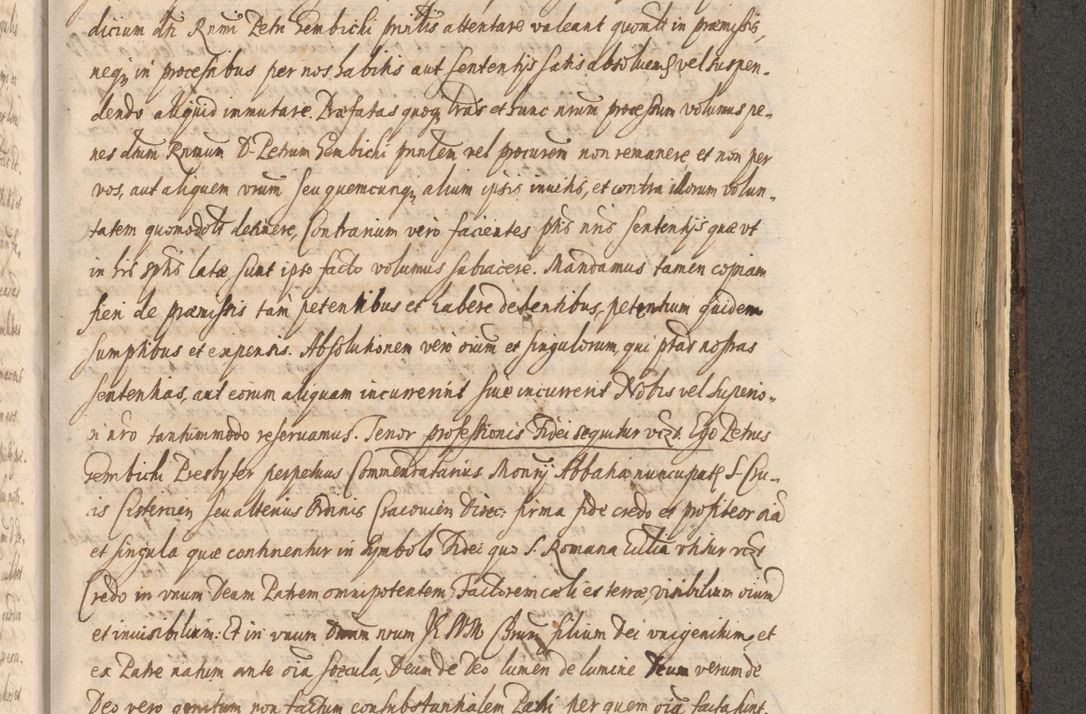 dicium dti Rnmi Petri Gembichi pntis attentare valeant quomlt in præmissis,
neqȝ in processibus per nos habitis aut sententijs latis absoluendo vel suspen-
dendo aliquid immutare. Præfatas quoqȝ lras et hunc nrum processum volumus pe-
nes dtum Rnmum D. Petrum Gembichi pntem vel procurem non remanere, et non per
vos, aut aliquem vrum seu quemcunqȝ alium ipsis inuitis, et contra illorum volun-
tatem quomodolt detinere, Contrarium vero facientes pntis nris sententijs quæ vt
in his sptis latæ sunt ipso facto volumus subiacere. Mandamus tamen copiam
fieri de præmissis tam petentibus et habere debentibus, petentium quidem
sumptibus et expensis. Absolutionem vero oium et singulorum qui ptas nostras
sententias, aut eorum aliquam incurrerint siue incurrerit Nobis vel superio-
ri nro tantummodo reseruamus. Tenor professionis Fidei sequitur vizt. Ego Petrus
Gembichi Presbyter perpetuus Commendatarius Monrij Abbatia nuncupat S. Cru-
cis Cistercien seu alterius Ordinis Cracouien Dioec: firma fide credo et profiteor oia
et singula quæ continentur in Symbolo Fidei quo S. Romana Ecclia vtitur vizt
Credo in vnum Deum Patrem omnipotentem, Factorem cæli et terræ, visibilium oium
et inuisibilium: Et in vnum Dnum nrum JESVM Chrum filium Dei vnigenitum, et
ex Patre natum ante oia sæcula, Deum de Deo lumen de lumine Deum verum de
Deo vero genitum non factum consubstantialem Patri per quem oia facta sunt.